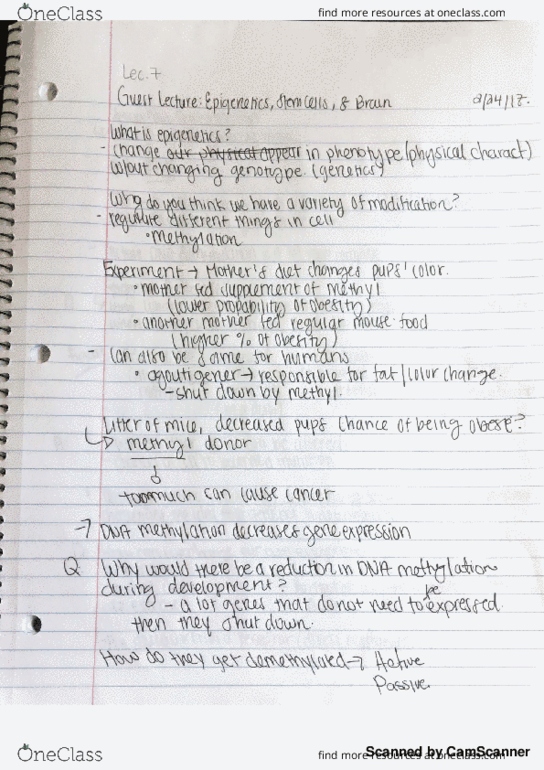 OneClass
find more resources at oneclass.com
Lec. 7
Guest Lecture: Epigenetics, Stem cells, & Brain 2/24/17.
What is epigenetics?
- change our physical appear in phenotype (physical charact)
w/out changing genotype. (genetics)
Why do you think we have a variety of modification?
- regulate different things in cell
• Methylation
Experiment → Mother's diet changes pups' color.
• mother fed supplement of methyl
(lower probability of obesity)
• another mother fed regular mouse food
(higher % of obesity)
- Can also be same for humans
• agouti gener → responsible for fat/color change.
- shut down by methyl.
Litter of mice, decreased pups chance of being obese?
↳ methyl donor
↓
too much can cause cancer
→ DNA methylation decreases gene expression
Q Why would there be a reduction in DNA methylation
during development?
- a lot genes that do not need to be expressed
then they shut down.
How do they get demethylated → Active
Passive.
OneClass
find more resources at oneclass.com
Scanned by CamScanner